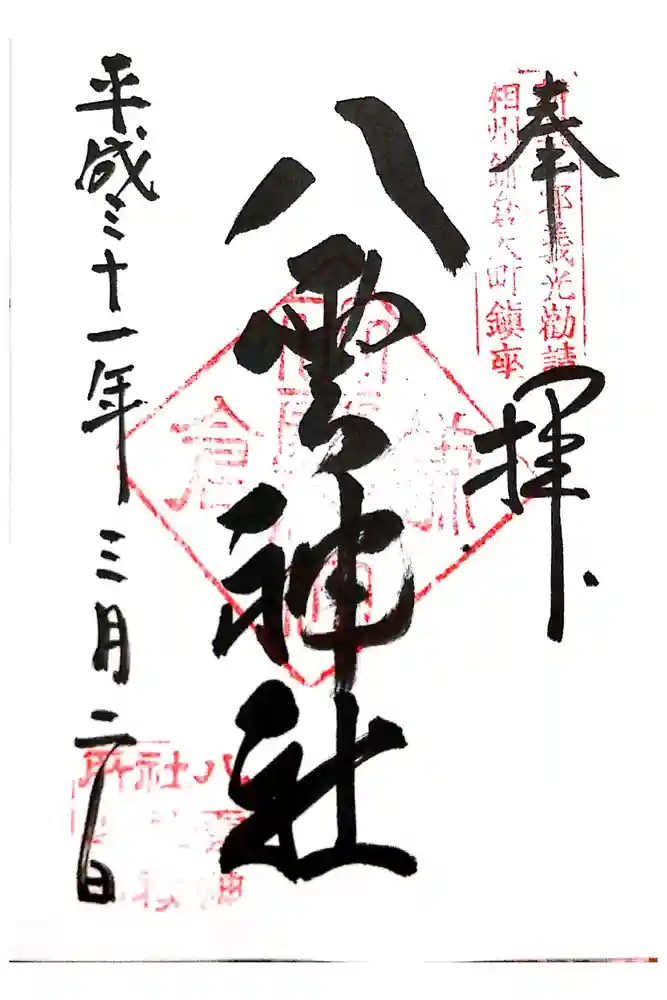 奉拝
郎義光勧請
相州鎌倉大町鎮座
八雲神社
鎌倉
平成三十一年三月二日